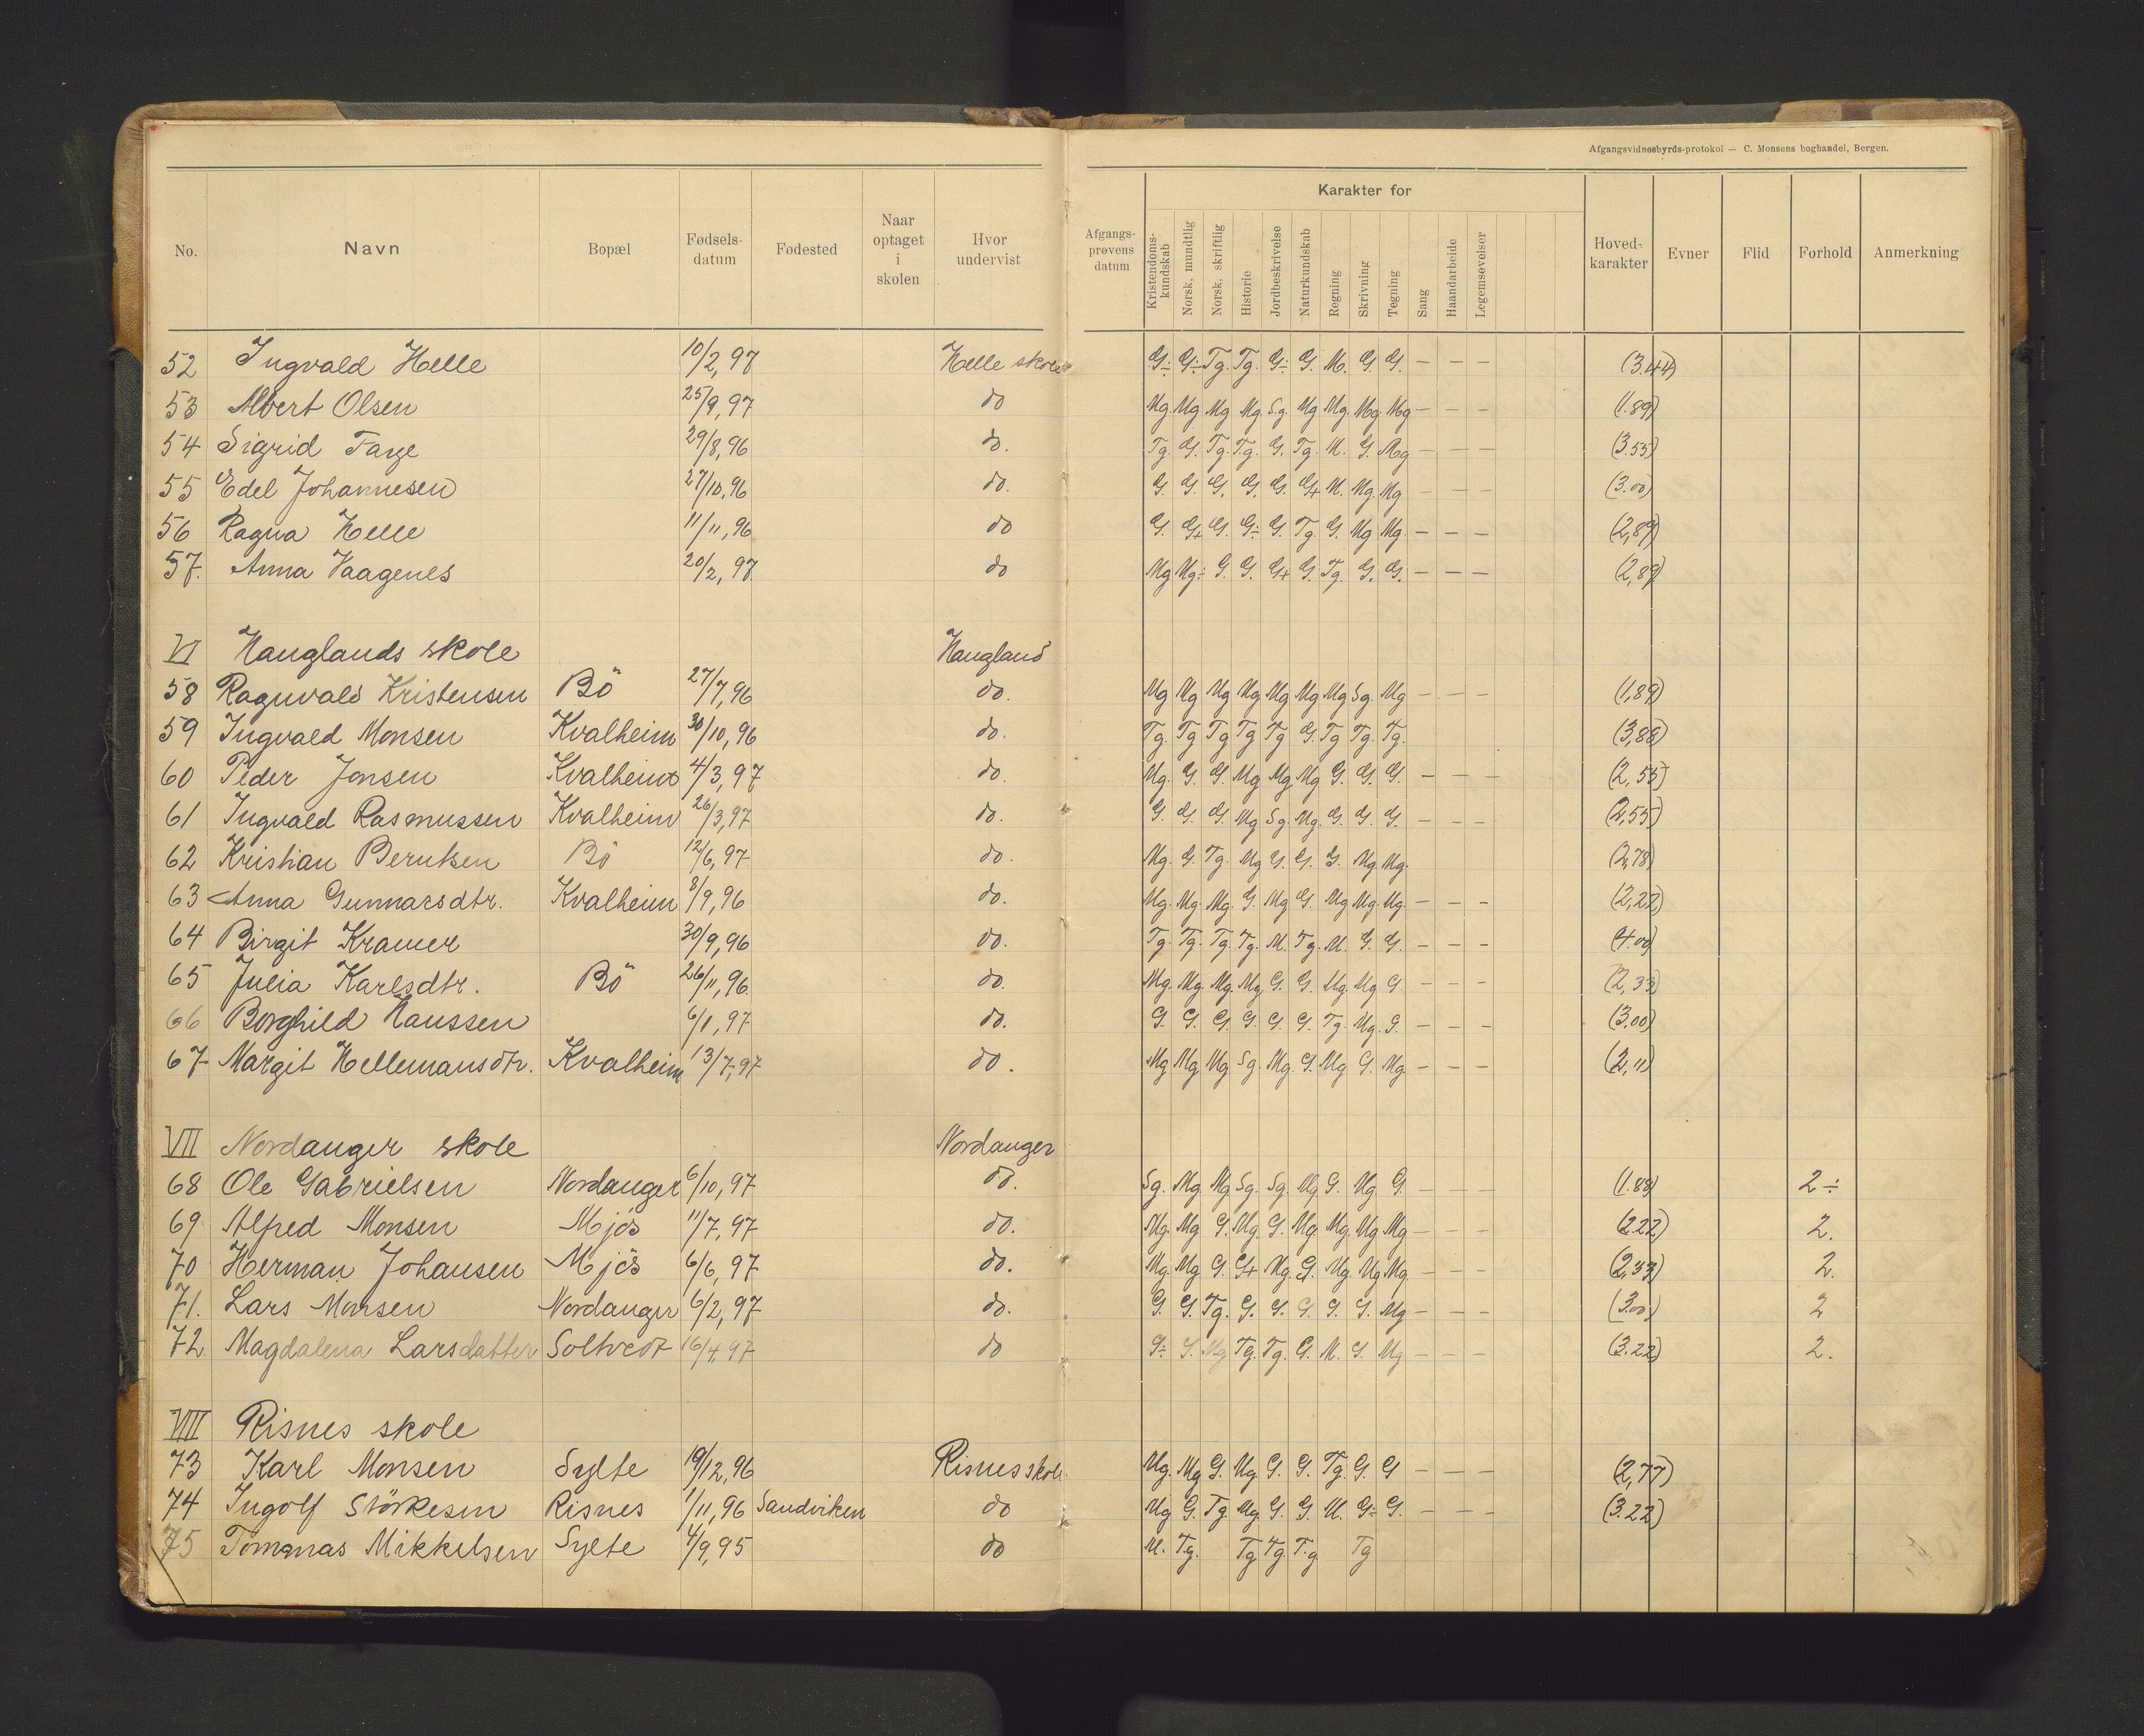 Afgangsvidnesbyrds-protokol — C. Monsens boghandel, Bergen.
Karakter for
No. Navn Bopæl Fødsels-datum Fødested Naar optaget i skolen Hvor undervist Afgangs-prøvens datum Kristendoms-kundskab Norsk, mundtlig Norsk, skriftlig Historie Jordbeskrivelse Naturkundskab Regning Skrivning Tegning Sang Haandarbeide Legemsøvelser Hoved-karakter Evner Flid Forhold Anmerkning
52 Ingvald Helle 10/2, 97 Helle skole G÷ G÷ Tg. Tg. G÷ G. M. G. G. — — — (3.44)
53 Albert Olsen 25/9, 97 do Mg. Mg. Mg Mg Sg. Mg Mg. Mg. Mg — — — (1.89)
54 Sigrid Farge 29/8, 96 do. Tg. G. Tg. Tg. G. Tg. M. G. Mg — — — (3.55)
55 Edel Johannesen 27/10, 96 do. G. G. G. G. G. G+ M. Mg. Mg — — — (3.00)
56 Ragna Helle 11/11, 96 do G. G+ G. G÷ G. Tg. G. Mg Mg. — — — (2,89)
57. Anna Vaagenes 20/2, 97. do Mg Mg÷ G. G. G+ G. Tg. G. G. — — — (2,89)
VI Hauglands skole Haugland
58 Ragnvald Kristensen Bö 27/7, 96 do. Mg Mg Mg Mg Mg Mg Mg Sg. Mg — — — (1,89)
59 Ingvald Monsen Kvalheim 30/10, 96 do. Tg. Tg Tg Tg Tg G. Tg Tg. Tg. (3,88)
60 Peder Jonsen Kvalheim 4/3, 97 do. Mg. G. G. Mg Mg Mg G. G. G. — — — (2,55)
61 Ingvald Rasmussen Kvalheim 26/3, 97 do. G. G. G. Mg Sg. Mg. G. G. G. — — — (2,55)
62 Kristian Berntsen Bö 12/6, 97 do. Mg. G. Tg. Mg G. G. G. Mg. Mg. (2,78)
63 Anna Gunnarsdtr. Kvalheim 8/9, 96 do. Mg. Mg. Mg. G. Mg G. Mg Mg. Mg. — — — (2,22)
64 Birgit Kramer 30/9, 96 do. Tg. Tg. Tg. Tg. M. Tg. M. G. G. — — — (4.00)
65 Julia Karlsdtr. Bö 26/11, 96 do. Mg. Mg. Mg. Mg G. G. Mg. Mg G. — — — (2,33)
66 Borghild Haussen 6/1, 97 do. G. G. G. G. G. G. Tg. Mg. G. — — — (3.00)
67 Margit Hellemansdtr. Kvalheim 13/7, 97 do. Mg Mg Mg Sg. Mg. G. Mg G. Mg. — — — (2,11)
VII Nordanger skole Nordanger
68 Ole Gabrielsen Nordanger 6/10, 97 do. Sg. Mg. Mg Sg. Sg. Mg G. Mg G. — — — (1.88) 2÷
69 Alfred Monsen Mjös 11/7, 97 do. Mg. Mg G. Mg G. Mg. Mg. Mg Mg — — — (2.22) 2.
70 Herman Johansen Mjös 6/6, 97 do. Mg. Mg G. G+ Mg. G. Mg. Mg Mg. — — — (2,33) 2.
71. Lars Monsen Nordanger 6/2, 97 do. G. G. Tg. G. G. G. G. G. Mg — — — (3.00) 2
72. Magdalena Larsdatter Soltvedt 16/4, 97 do G÷ G. Mg Tg. Tg. G. M. G. Mg — — — (3.22) 2.
VIII Risnes skole
73 Karl Monsen Sylte 19/12, 96 Risnes skole Mg. Mg G. Mg G. G. Tg. G. G — — — (2,77)
74 Ingolf Störkesen Risnes 1/11, 96 Sandviken do Mg G. Tg. Mg. G. G. M. G÷ G. — — — (3.22)
75 Tomanas Mikkelsen Sylte 4/9, 95 do M. Tg. Tg Tg. T.g. Tg